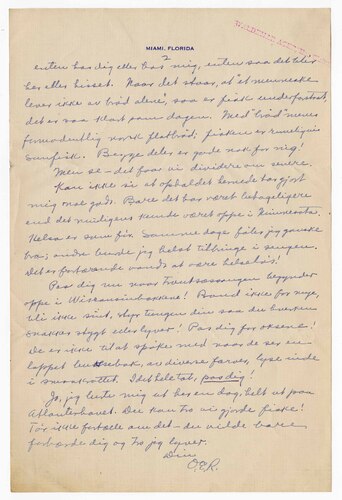 MIAMI, FLORIDA
2
enten hos dig eller hos mig, enten saa det blir
her eller hisset. Naar det staar, at "et menneske
lever ikke av brød alene", saa er fisk underforstaat,
det er saa klart som dagen. Med "brød" menes
formodentlig norsk flatbrød; fisken er rimeligvis
Sunfisk. Begge deler er gode nok for mig!
Men se – det faar vi dividere om senere.
Kan ikke si at opholdet hernede har gjort
mig noe godt. Bare det har været behageligere
end det muligens kunde været oppe i Minnesota.
Helsa er som før. Somme dager føler jeg ganske
bra; andre burde jeg helst tilbringe i sengen.
Det er forbandet vondt at være helseløs!
Pas dig nu naar Trout-sæsongen begynder
oppe i Wisconsinbækkene! Band ikke for mye,
bli ikke sint, styr tungen din saa du hverken
snakker stygt eller lyver! Pas dig for oksene!
De er ikke til at spøke med naar de ser en
lappet buksebak, av diverse farver, lyse inde
i smaakrattet. I det hele tat, pas dig!
Jo, jeg lurte mig ut her en dag, helt ut paa
Atlanterhavet. Du kan tro vi gjorde fiske!
Tør ikke fortælle om det – du vilde bare
forbande dig og tro jeg lyver.
Din
O.E.R.